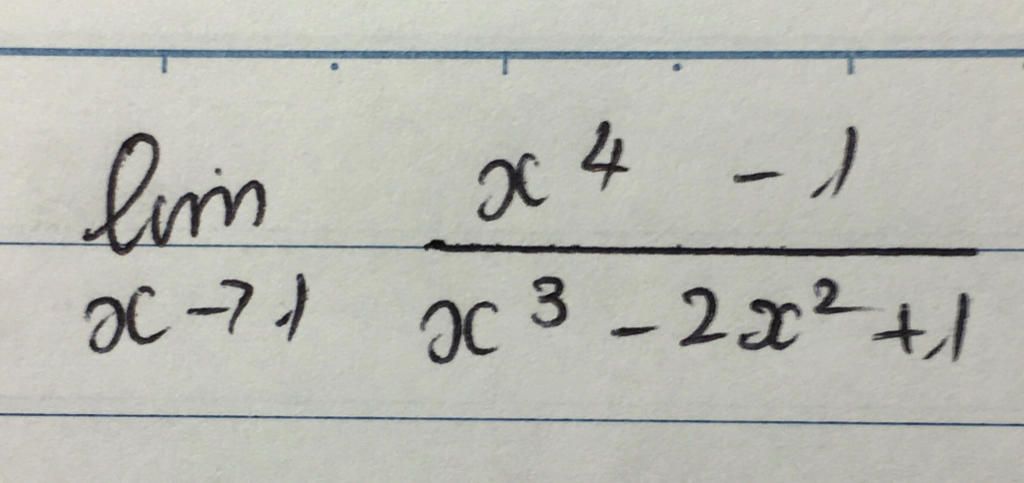 lim x→1 (x⁴ - 1)/(x³ - 2x² + 1)